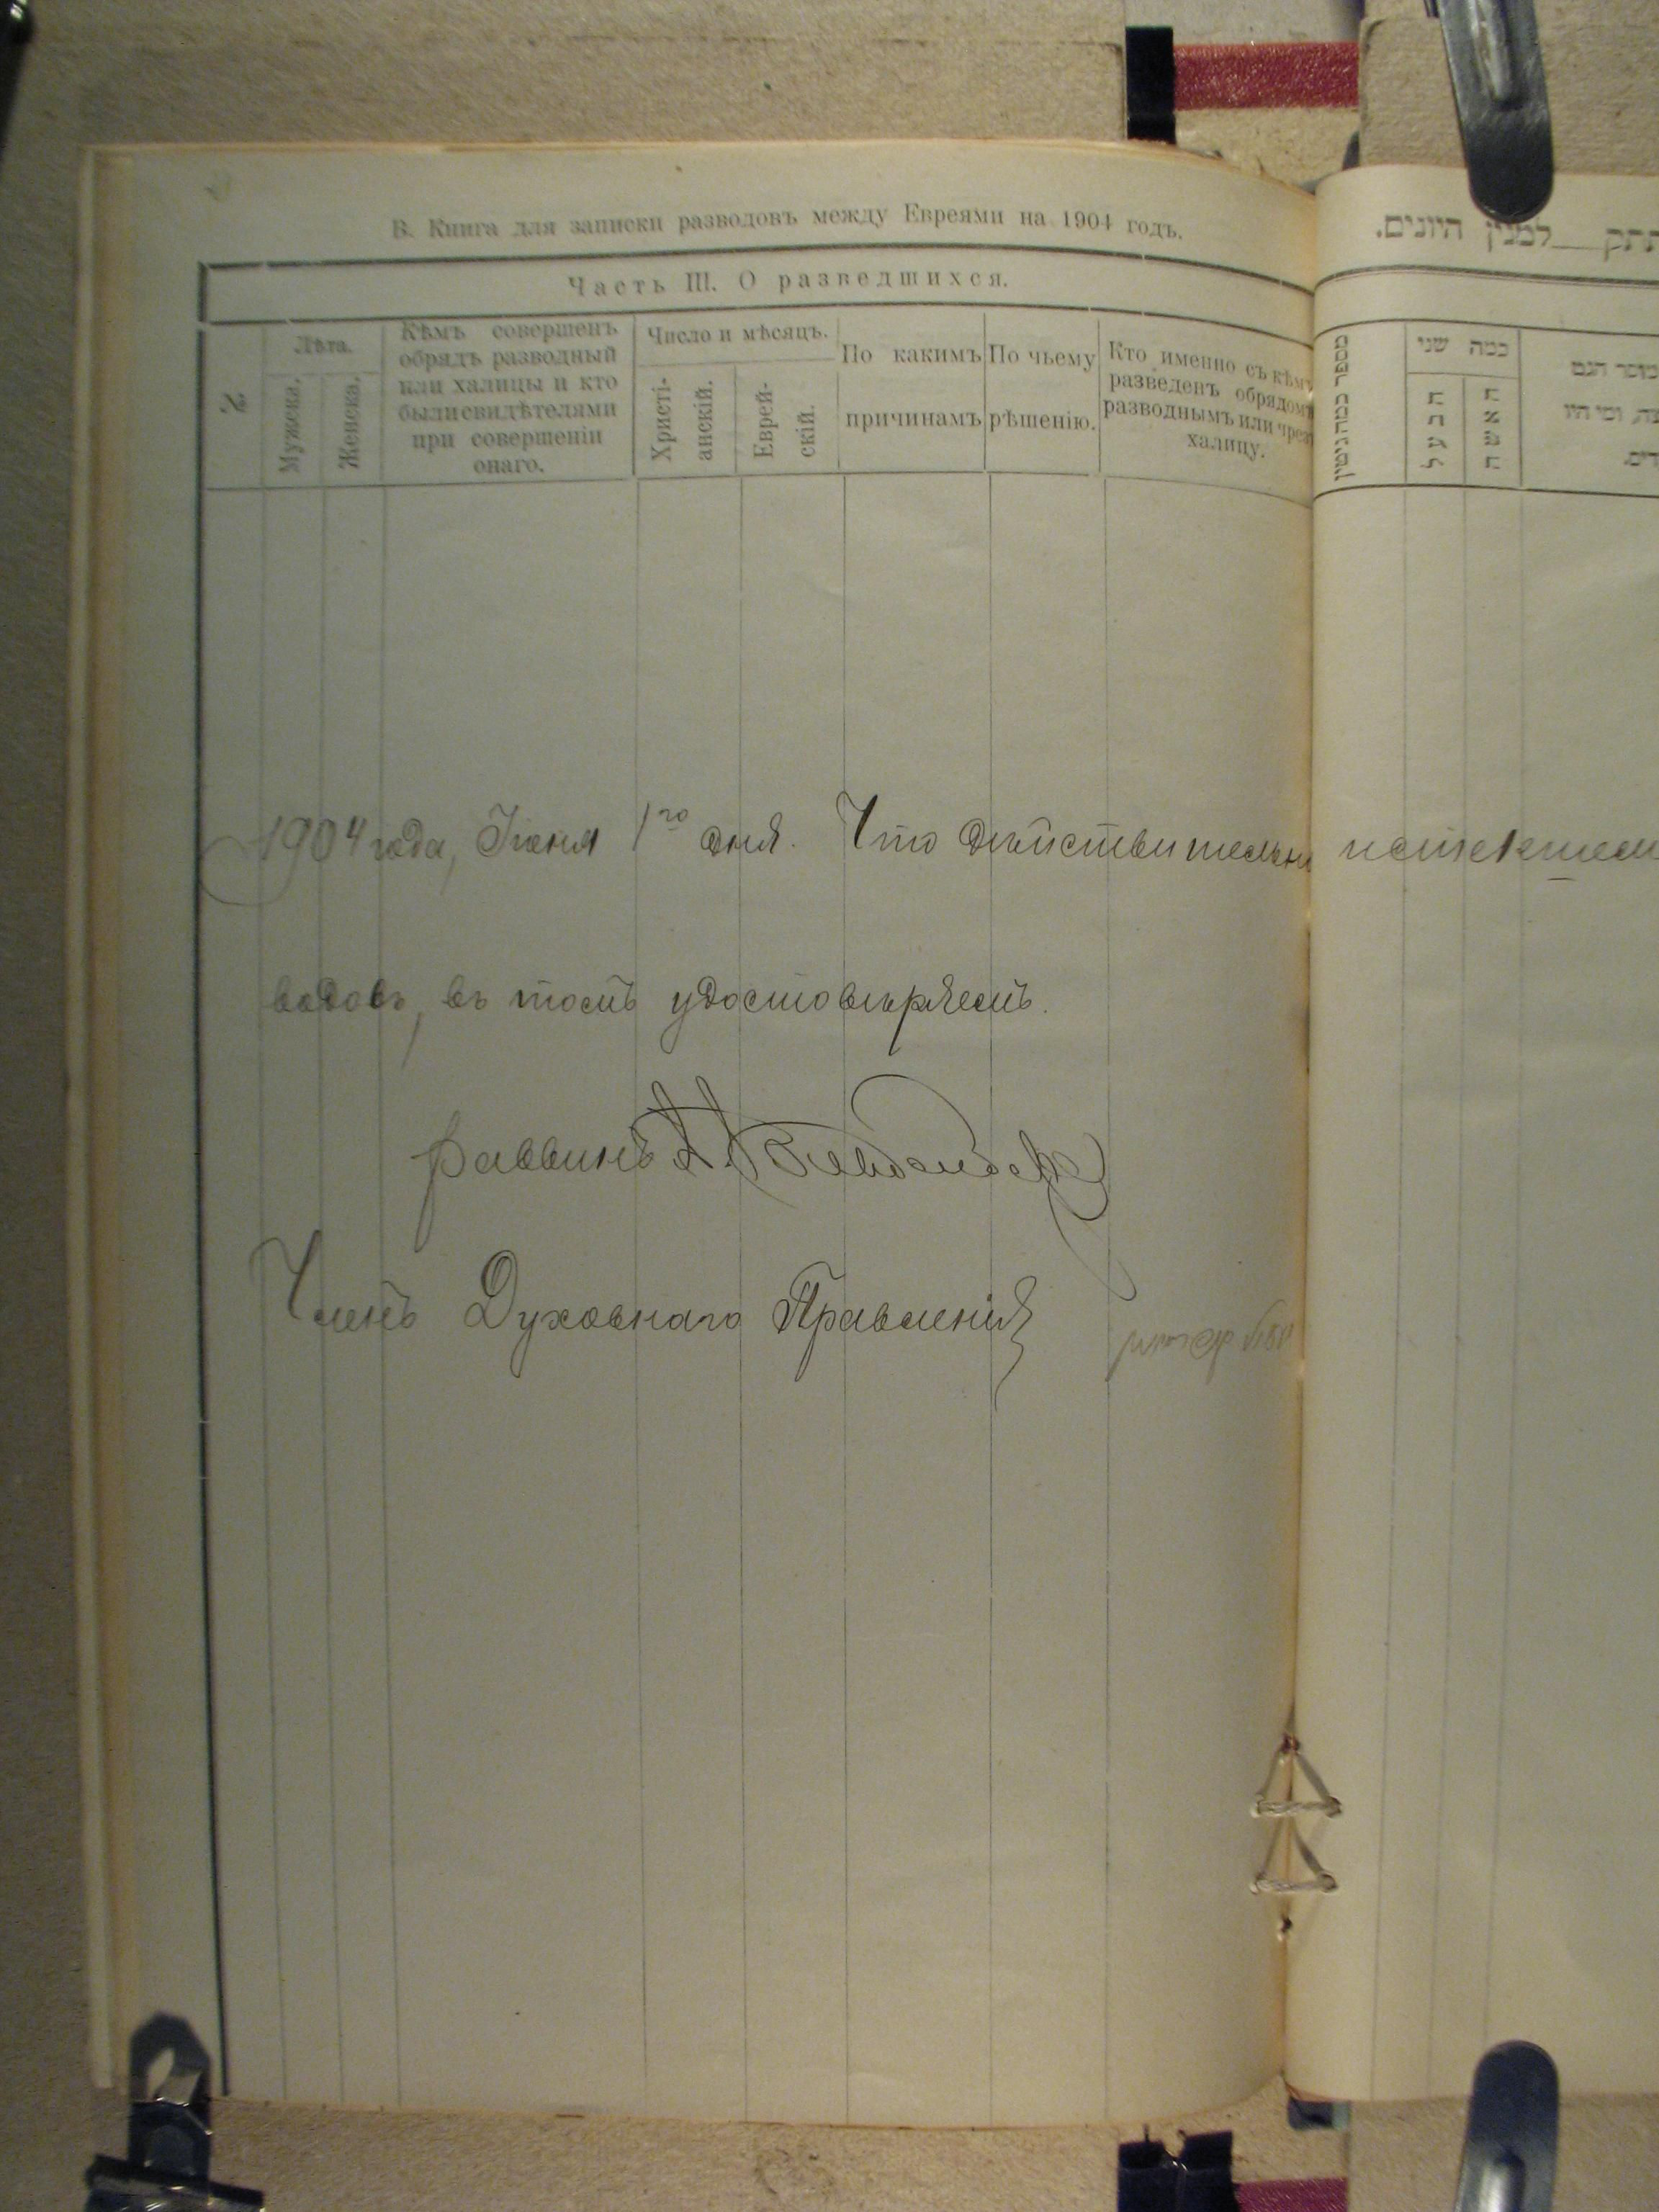 В. Книга для записки разводовъ между Евреями на 1904 годъ.
Часть III. О разведшихся.
№.
Лѣта.
Мужеска.
Женска.
Кѣмъ совершенъ
обрядъ разводный
или халицы и кто
были свидѣтелями
при совершеніи
онаго.
Число и мѣсяцъ.
Христі-
анскій.
Еврей-
скій.
По какимъ
причинамъ
По чьему
рѣшенію.
Кто именно съ кѣмъ
разведенъ обрядомъ
разводнымъ или чрезъ
халицу.
למנין היונים.
מספר כמה גיטין
כמה שני
הבעל
האשה
1904 года, Іюня 1го дня. Что дѣйствительно истекшем
водовъ, въ томъ удостовѣряемъ.
Раввинъ
Членъ Духовнаго Правленія